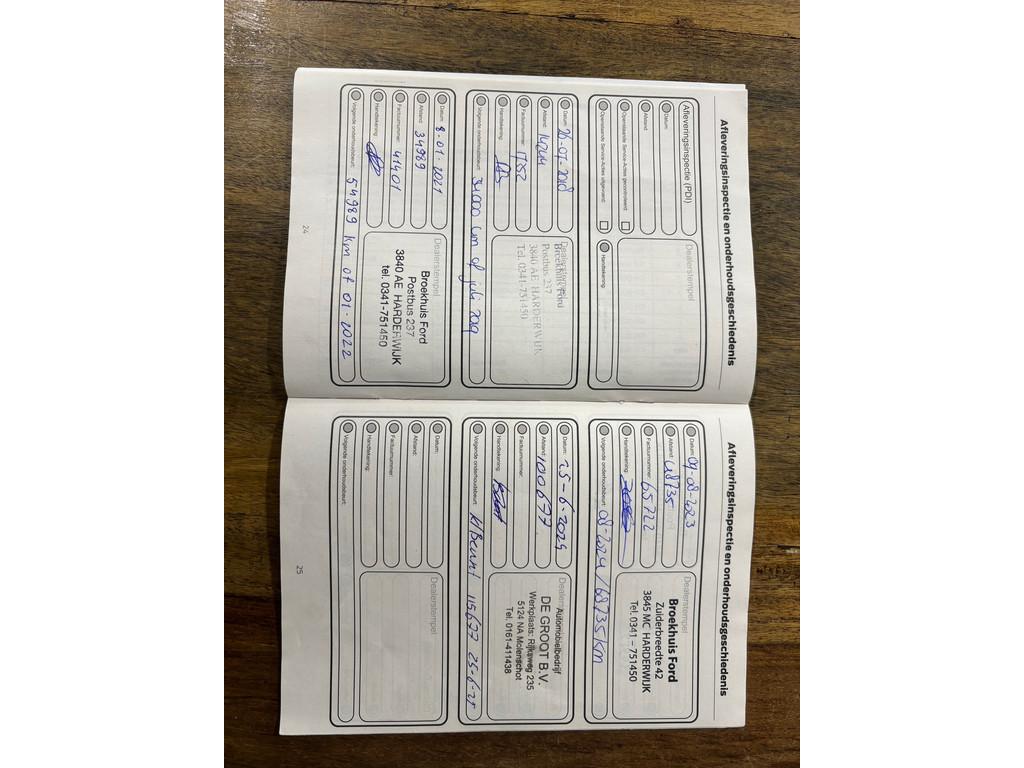 Afleveringsinspectie en onderhoudsgeschiedenis
Afleveringsinspectie (PDI)
Datum:
Afstand:
Openstaande Service-Acties gecontroleerd:
Openstaande Service-Acties uitgevoerd:
Handtekening:
Dealerstempel
Datum: 26-07-2018
Afstand:
Factuurnummer:
Handtekening:
Volgende onderhoudsbeurt: 31.000 km of juli 2019
Dealerstempel
Broekhuis Ford
Postbus 237
3840 AE HARDERWIJK
Tel. 0341-751450
Datum: 8-01-2021
Afstand: 34989
Factuurnummer: 41401
Handtekening:
Volgende onderhoudsbeurt: 54989 km of 01-2022
Dealerstempel
Broekhuis Ford
Postbus 237
3840 AE HARDERWIJK
tel. 0341-751450
24
Afleveringsinspectie en onderhoudsgeschiedenis
Datum: 09-08-2023
Afstand: 48735
Factuurnummer: 65722
Handtekening:
Volgende onderhoudsbeurt: 08-2024/68735km
Dealerstempel
Broekhuis Ford
Zuiderbreedte 42
3845 MC HARDERWIJK
Tel. 0341 - 751450
Datum: 25-6-2024
Afstand: 100677
Factuurnummer:
Handtekening:
Volgende onderhoudsbeurt: Kl Beurt 115677 25-6-25
Dealerstempel
Automobielbedrijf
DE GROOT B.V.
Werkplaats: Rijksweg 235
5124 NA Molenschot
Tel. 0161-411438
Datum:
Afstand:
Factuurnummer:
Handtekening:
Volgende onderhoudsbeurt:
Dealerstempel
25